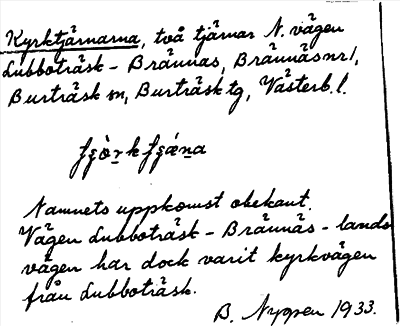 Kyrktjärnarna, två tjärnar N. vägen
Lubboträsk - Brännäs, Brännäs nr 1,
Burträsk sn, Burträsk tg, Västerb. l.
Namnets uppkomst obekant.
Vägen Lubboträsk - Brännäs - lands
vägen har dock varit kyrkvägen
från Lubboträsk.
B. Nygren 1933.